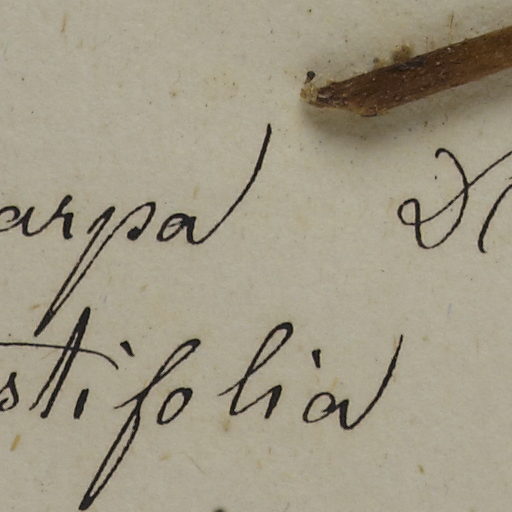 arpa
stifolia